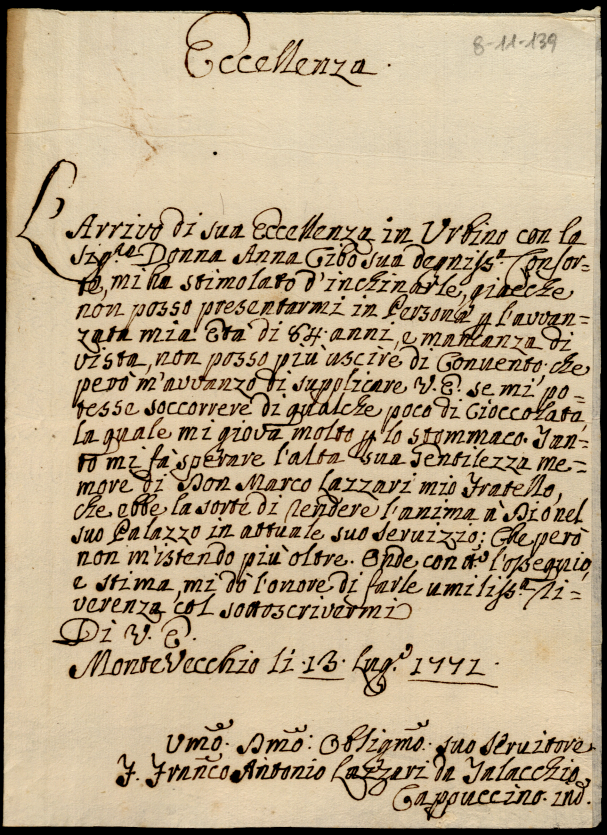 8-11-139
Eccellenza.
L'Arrivo di sua Eccellenza in Urbino con la
Sig.ra Donna Anna Cibò sua degniss.a Consor=
te, mi ha stimolato d'inchinarle, giacche
non posso presentarmi in Persona p l'avvan=
zata mia Età di 84 anni, e mancanza di
vista, non posso più uscire di Convento che
però m'avvanzo di supplicare V. E. se mi po=
tesse soccorrere di qualche poco di Cioccolata,
la quale mi giova molto p lo stommaco. Tan=
to mi fà sperare l'alta sua Gentilezza me=
more di Don Marco Lazzari mio Fratello,
che ebbe la sorte di rendere l'anima à Dio nel
suo Palazzo in attuale suo servizzio; Che però
non m'istendo più oltre. Onde con l'ossequio,
e stima, mi dò l'onore di farle umiliss.a ri=
verenza col sottoscrivermi
Di V. E.
MonteVecchio li 13. Lug.o 1771.
Umo. Dmo: Obligmo. suo Servitore
F. Franco Antonio Lazzari da Talacchio
Cappuccino. ind.